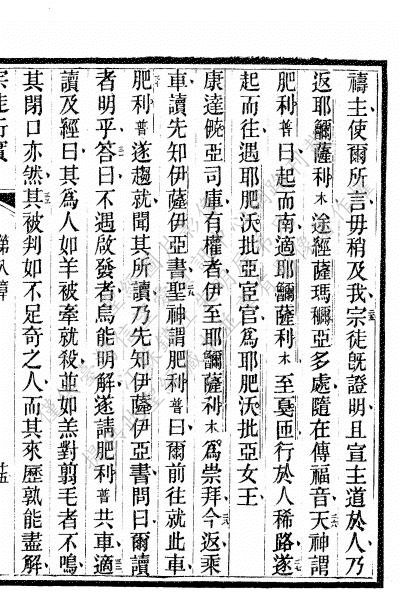 禱主使爾所言毋稍及我宗徒旣證明且宣主道於人乃
返耶𬨨薩利木途經薩瑪𥡴亞多處隨在傳福音天神謂
肥利普曰起而南適耶𬨨薩利木至戞匝行於人稀路遂
起而往遇耶肥沃批亞宦官爲耶肥沃批亞女王
康達饒亞司庫有權者伊至耶𬨨薩利木爲崇拜今返乘
車讀先知伊薩伊亞書聖神謂肥利普曰爾前往就此車
肥利普遂趨就聞其所讀乃先知伊薩伊亞書問曰爾讀
者明乎答曰不遇啟發者烏能明解遂請肥利普共車適
讀及經曰其爲人如羊被牽就役並如羔對翦毛者不鳴
其閉口亦然其被判如不足奇之人而其來歷孰能盡解
宗徒行實
第八章